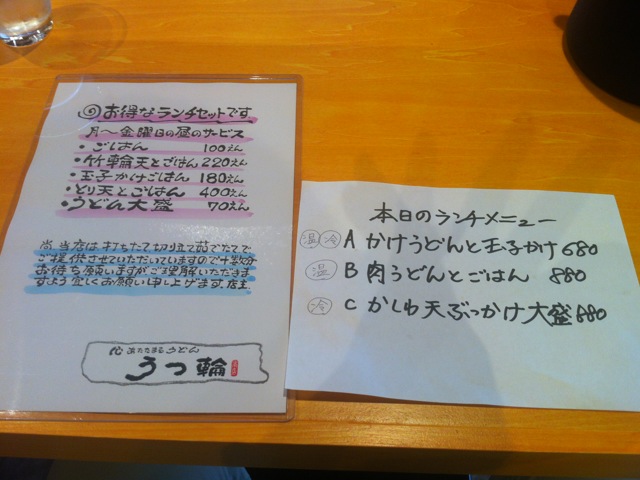 お得なランチセットです
月～金曜日の昼のサービス
・ごはん 100えん
・竹輪天とごはん 220えん
・玉子かけごはん 180えん
・とり天とごはん 400えん
・うどん大盛 70えん
尚当店は打ちたて切り立て茹でたてで
ご提供させていただいていますので十数分
お待ち願いますがご理解いただきま
すよう宜しくお願い申し上げます。店主
心あたたまるうどん
うつ輪
本日のランチメニュー
温 冷 A かけうどんと玉子かけ 680
温 B 肉うどんとごはん 880
冷 C かしわ天ぶっかけ大盛 880